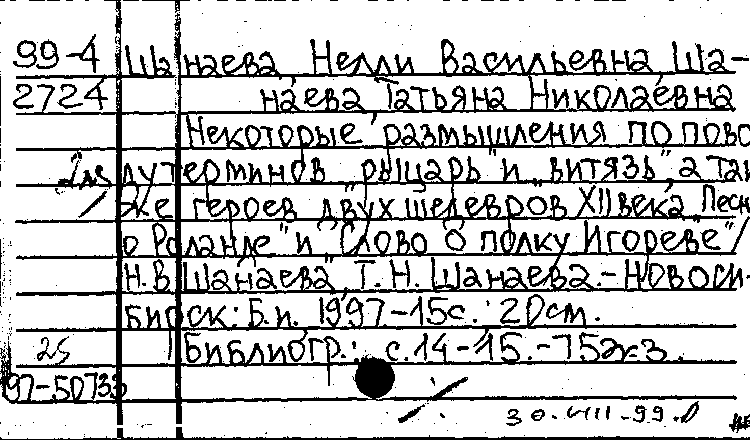 99-4 Шанаева, Нелли Васильевна, Ша-
2724 наева, Татьяна Николаевна
Некоторые размышления по пово
ду терминов "рыцарь" и "витязь", а так
же героев двух шедевров XII века "Песн
о Роланде" и "Слово о полку Игореве" /
Н.В. Шанаева, Т. Н. Шанаева. - Новоси-
бирск: Б.и., 1997.-15с.: 20см.
25 Библиогр.: с.14-15.-75экз.
97-50733
30.VIII.99.